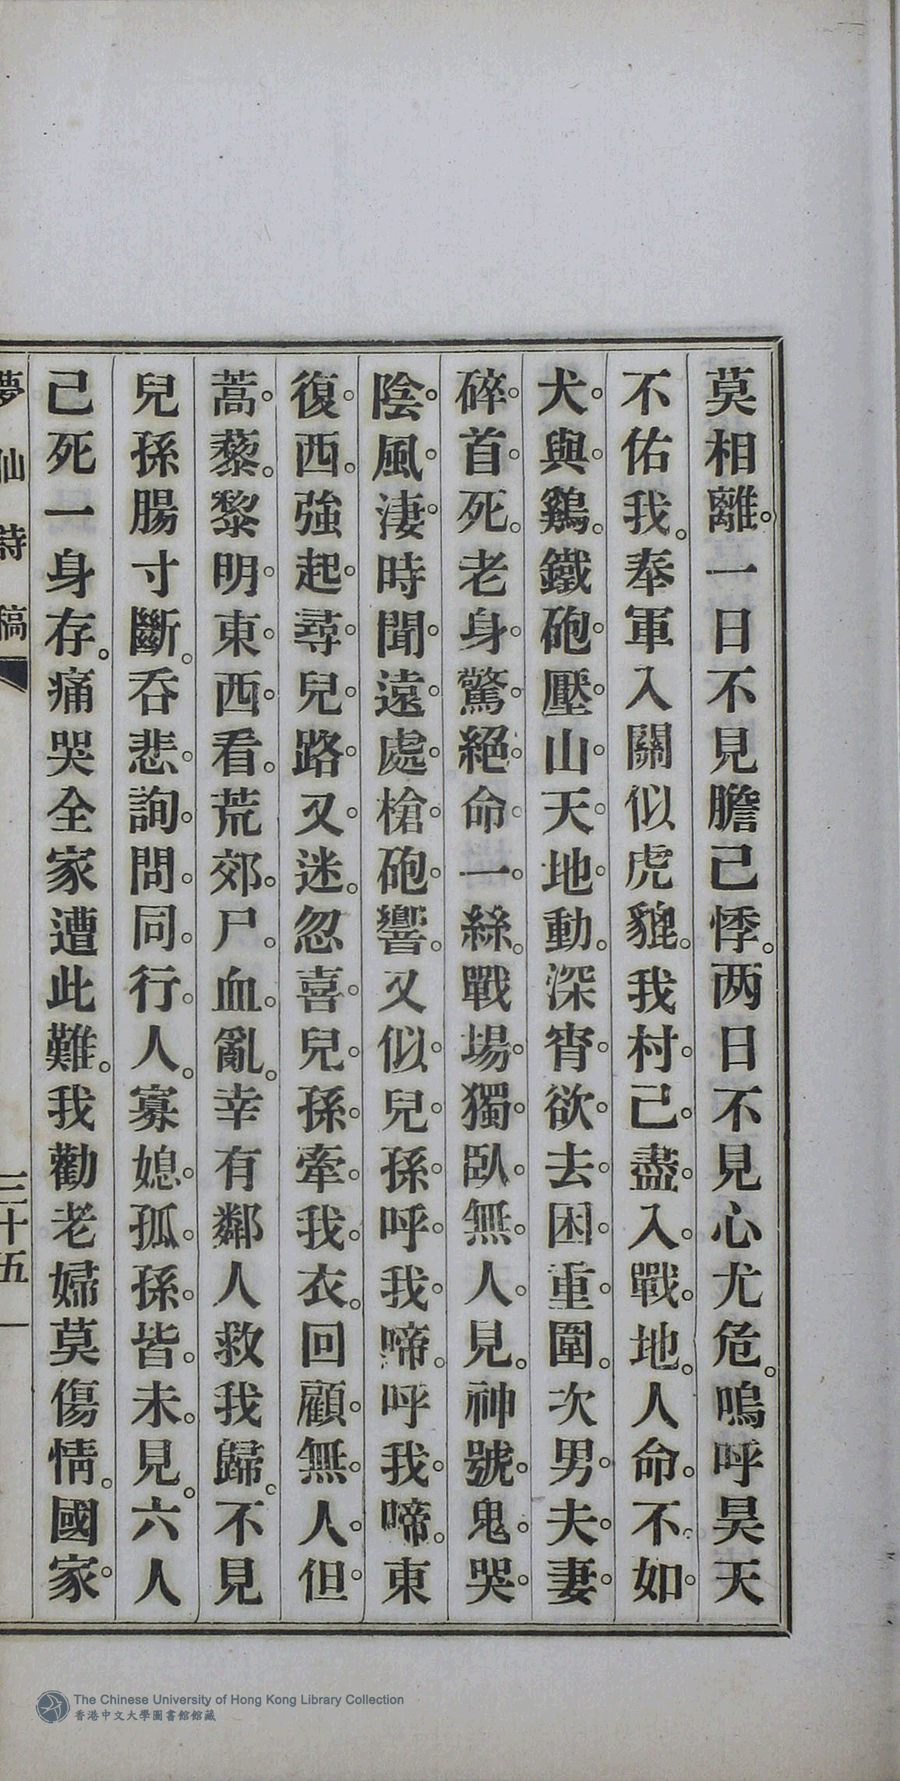 莫相離。一日不見膽己悸。两日不見心尤危。嗚呼昊天
不佑我。奉軍入關似虎貔。我村己盡入戰地。人命不如
犬與鷄。鐵砲壓山天地動。深宵欲去困重圍。次男夫妻
碎首死。老身驚絕命一絲。戰場獨臥無人見。神號鬼哭
陰風淒。時聞遠處槍砲響。又似兒孫呼我啼。呼我啼。東
復西。強起尋兒路又迷。忽喜兒孫牽我衣。回顧無人但
蒿藜。黎明東西看。荒郊尸血亂。幸有鄰人救我歸。不見
兒孫腸寸斷。吞悲詢問同行人。寡媳孤孫皆未見。六人
己死一身存。痛哭全家遭此難。我勸老婦莫傷情。國家
夢仙詩稿
三十五
The Chinese University of Hong Kong Library Collection
香港中文大學圖書館館藏